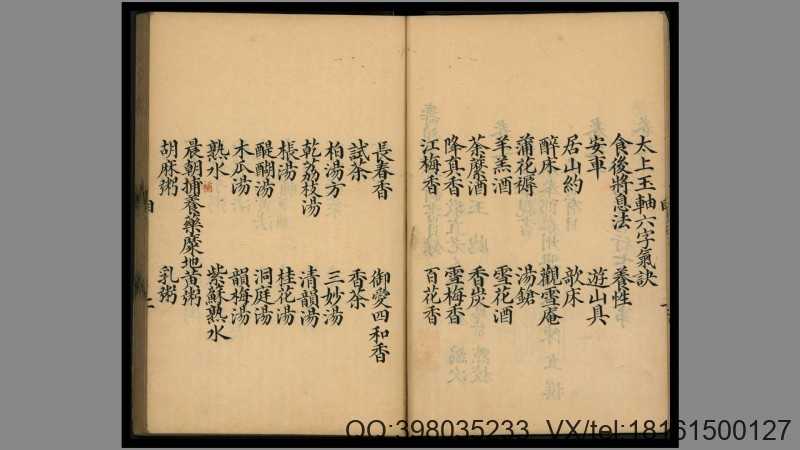 太上玉軸六字氣訣
食後將息法 養性
安車 遊山具
居山約 歌床
醉床 觀雪庵
蒲花褥 湯鎗
羊羔酒 雪花酒
荼蘼酒 香炭
降真香 雪梅香
江梅香 百花香
長春香 御愛四和香
試茶 香茶
柏湯方 三妙湯
乾荔枝湯 清韻湯
棖湯 桂花湯
醍醐湯 洞庭湯
木瓜湯 韻梅湯
熟水 紫蘇熟水
晨朝補養藥糜 地黃粥
胡麻粥 乳粥
QQ:398035233 VX/tel:18161500127